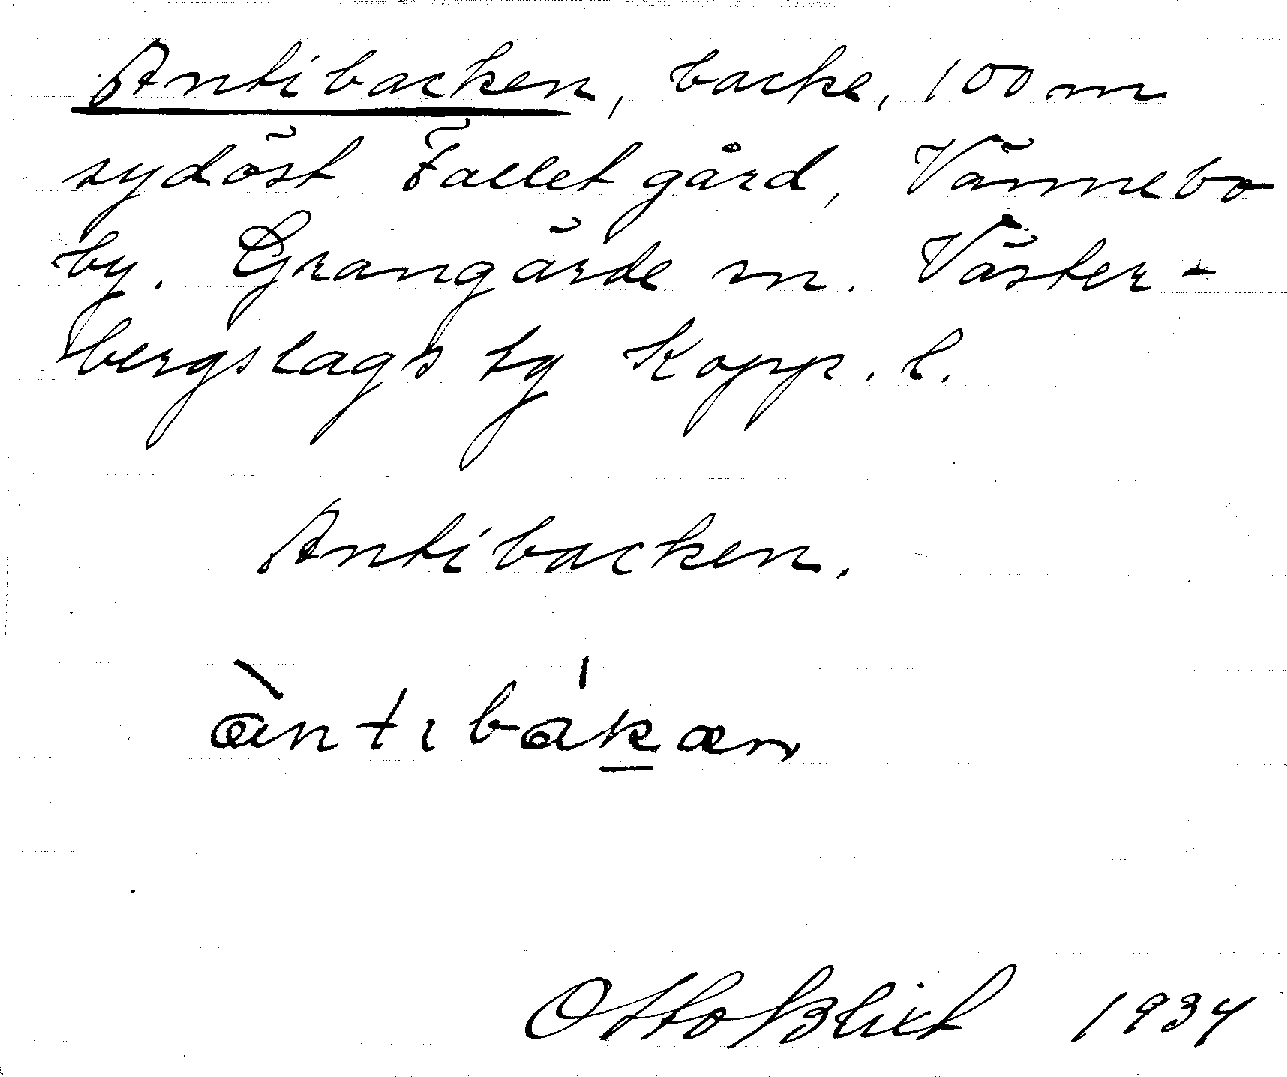 Antibacken, backe, 100 m
sydöst Fallet gård, Vännebo
by. Grangärde sn. Väster-
bergslags tg Kopp. l.
Antibacken.
àntıbákæn
Otto Blixt 1934